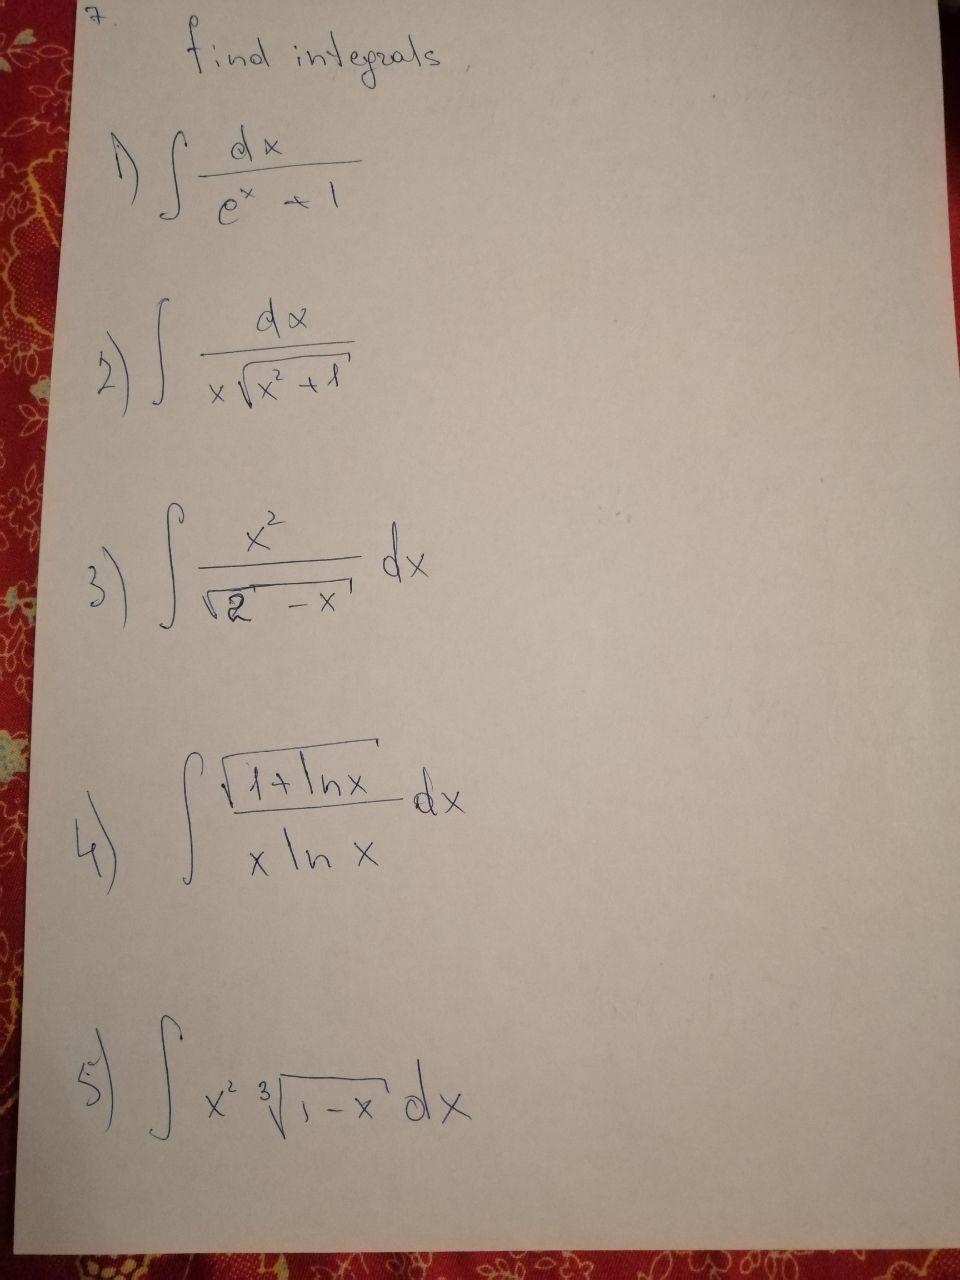 7.
find integrals
1) ∫ dx / (e^x + 1)
2) ∫ dx / (x√(x² + 1))
3) ∫ x² / √(2 - x) dx
4) ∫ √(1 + ln x) / (x ln x) dx
5) ∫ x² ∛(1 - x) dx